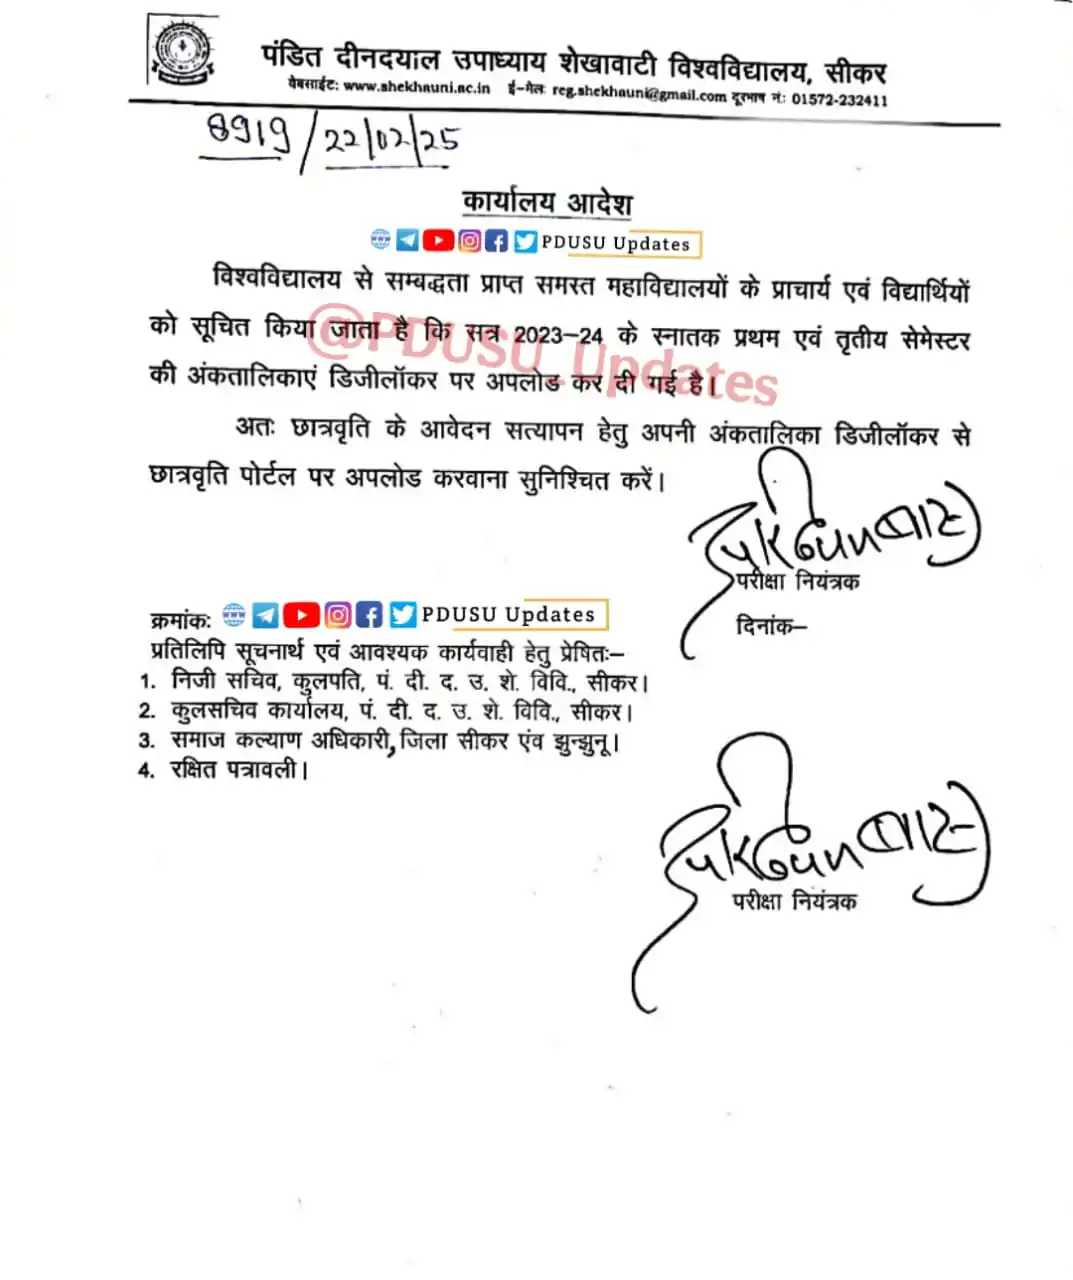 पंडित दीनदयाल उपाध्याय शेखावाटी विश्वविद्यालय, सीकर
वेबसाईट: www.shekhauni.ac.in ई-मेलः reg.shekhauni@gmail.com दूरभाष नं: 01572-232411
8919/22/02/25
कार्यालय आदेश
PDUSU Updates
विश्वविद्यालय से सम्बद्धता प्राप्त समस्त महाविद्यालयों के प्राचार्य एवं विद्यार्थियों
को सूचित किया जाता है कि सत्र 2023-24 के स्नातक प्रथम एवं तृतीय सेमेस्टर
@PDUSU_Updates
की अंकतालिकाएं डिजीलॉकर पर अपलोड कर दी गई है।
अतः छात्रवृति के आवेदन सत्यापन हेतु अपनी अंकतालिका डिजीलॉकर से
छात्रवृति पोर्टल पर अपलोड करवाना सुनिश्चित करें।
परीक्षा नियंत्रक
दिनांक–
क्रमांक: PDUSU Updates
प्रतिलिपि सूचनार्थ एवं आवश्यक कार्यवाही हेतु प्रेषितः–
1. निजी सचिव, कुलपति, पं. दी. द. उ. शे. विवि., सीकर।
2. कुलसचिव कार्यालय, पं. दी. द. उ. शे. विवि., सीकर।
3. समाज कल्याण अधिकारी, जिला सीकर एंव झुन्झुनू।
4. रक्षित पत्रावली।
परीक्षा नियंत्रक